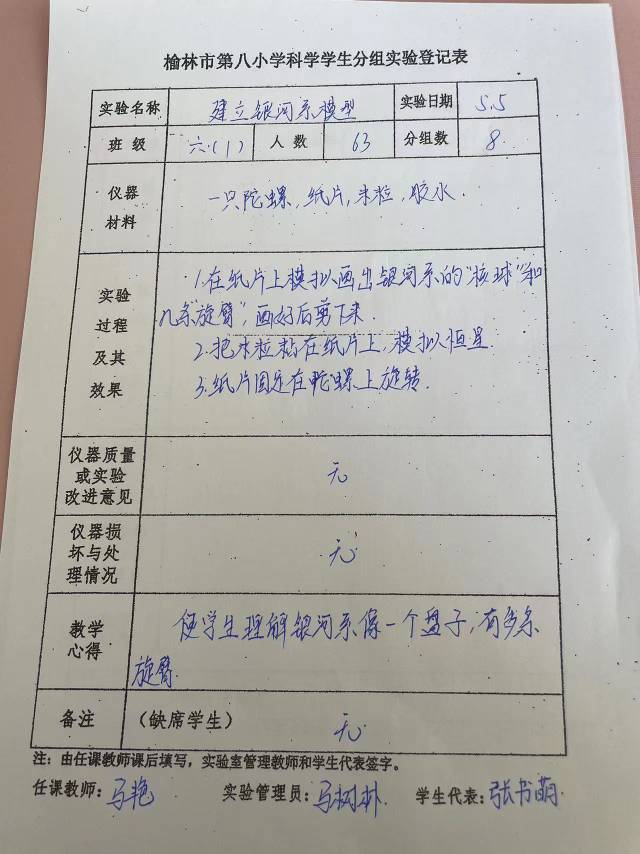 榆林市第八小学科学学生分组实验登记表
实验名称 建立银河系模型 实验日期 5.5
班 级 六.(1) 人 数 63 分组数 8.
仪器
材料
一只陀螺,纸片,米粒,胶水.
实验
过程
及其
效果
1.在纸片上模拟画出银河系的“核球”和
几条“旋臂”,画好后剪下来.
2.把米粒粘在纸片上,模拟恒星.
3.纸片固定在陀螺上旋转.
仪器质量
或实验
改进意见
无
仪器损
坏与处
理情况
无
教学
心得
使学生理解银河系像一个盘子,有多条
旋臂
备注 (缺席学生) 无
注:由任课教师课后填写,实验室管理教师和学生代表签字。
任课教师:马艳 实验管理员:马树朴 学生代表:张书萌